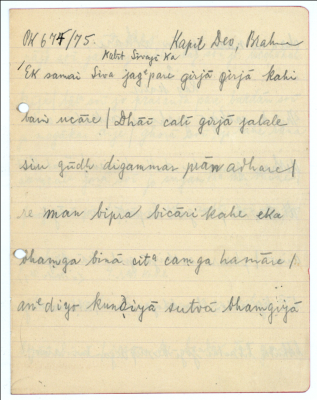 OK 674/75. Kapil Deo, Brahm
Kabit Sivaji Ka
'Ek samai Siva jagᵉ pare girjā girjā kahi
bain ucāre / Dhāī calī girjā jalale
siu gūdh digammar pān adhare /
re man bipra bicāri kahe eka
bhaṃga binā citᵃ caṃga hamāre /
anᵉ diyo kunḍiyā sutvā bhaṃgijā